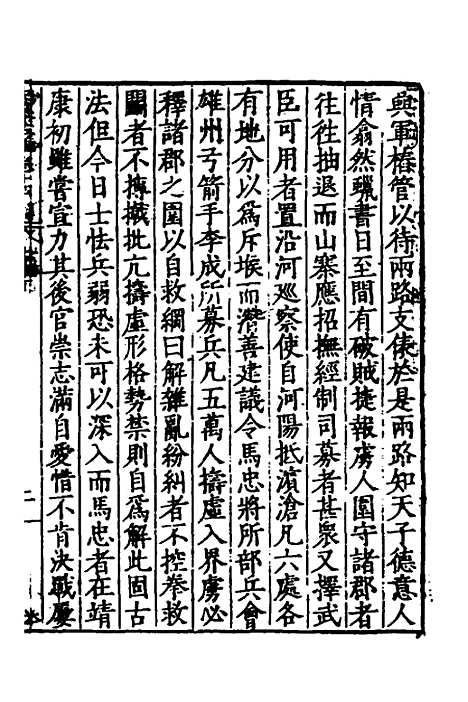 與軍樁管以待兩路支俵於是兩路知天子德意人
情翕然蠟書日至間有破賊捷報虜人圍守諸郡者
往往抽退而山寨應招撫經制司募者甚衆又擇武
臣可用者置沿河巡察使自河陽抵濱滄凡六處各
有地分以爲斥堠而潛善建議令馬忠將所部兵會
雄州弓箭手李成所募兵凡五萬人擣虛入界虜必
釋諸郡之圍以自救綱曰解雜亂紛糾者不控拳救
鬭者不摶撠批亢擣虛形格勢禁則自爲解此固古
法但今日士怯兵弱恐未可以深入而馬忠者在靖
康初雖嘗宣力其後官崇志滿自愛惜不肯決戰屢